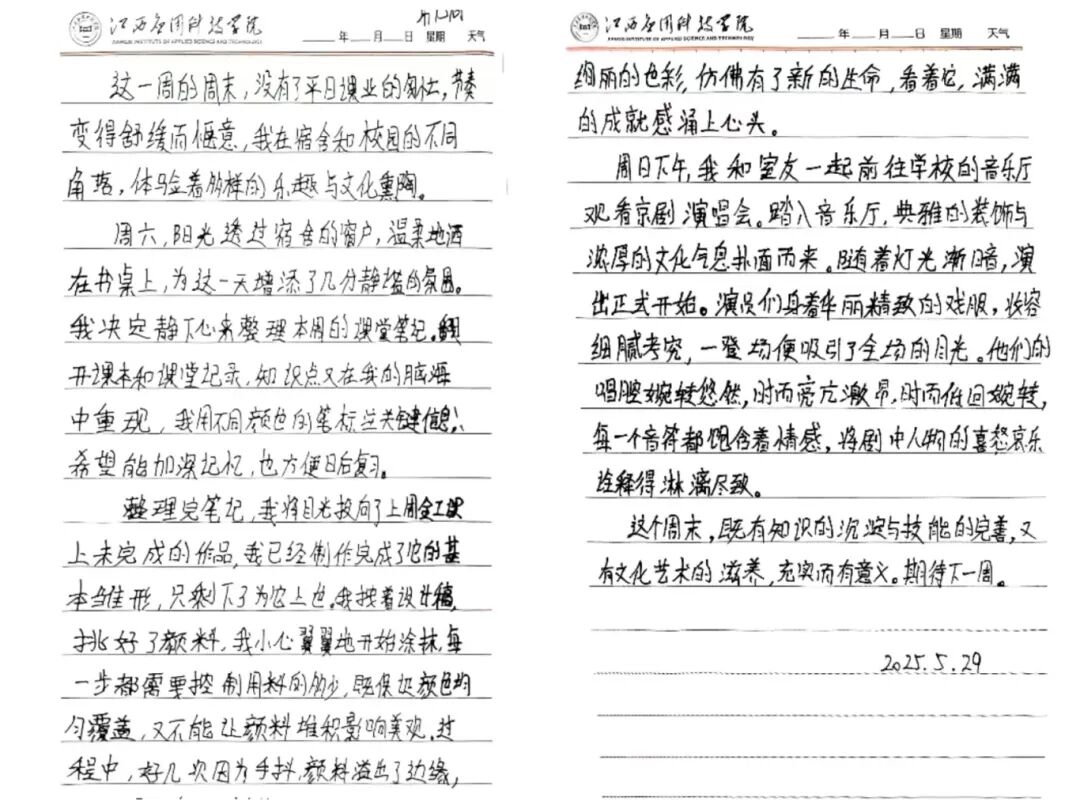 江西应用科技学院
JIANGXI INSTITUTE OF APPLIED SCIENCE AND TECHNOLOGY
年 月 日 星期 天气
这一周的周末，没有了平日课业的匆忙，节奏
变得舒缓而惬意，我在宿舍和校园的不同
角落，体验着多样的乐趣与文化熏陶。
周六，阳光透过宿舍的窗户，温柔地洒
在书桌上，为这一天增添了几分静谧的氛围。
我决定静下心来整理本周的课堂笔记。翻
开课本和课堂记录，知识点又在我的脑海
中重现，我用不同颜色的笔标注关键信息，
希望能加深记忆，也方便日后复习。
整理完笔记，我将目光投向了上周金工课
上未完成的作品，我已经制作完成了它的基
本雏形，只剩下了为它上色。我按着设计稿，
挑好了颜料，我小心翼翼地开始涂抹，每
一步都需要控制用料的多少，既保证颜色均
匀覆盖，又不能让颜料堆积影响美观。过
程中，好几次因为手抖，颜料溢出了边缘，
江西应用科技学院
JIANGXI INSTITUTE OF APPLIED SCIENCE AND TECHNOLOGY
年 月 日 星期 天气
绚丽的色彩，仿佛有了新的生命，看着它，满满
的成就感涌上心头。
周日下午，我和室友一起前往学校的音乐厅
观看京剧演唱会。踏入音乐厅，典雅的装饰与
浓厚的文化气息扑面而来。随着灯光渐暗，演
出正式开始。演员们身着华丽精致的戏服，妆容
细腻考究，一登场便吸引了全场的目光。他们的
唱腔婉转悠然，时而亮亢激昂，时而低回婉转，
每一个音符都饱含着情感，将剧中人物的喜怒哀乐
诠释得淋漓尽致。
这个周末，既有知识的沉淀与技能的完善，又
有文化艺术的滋养，充实而有意义。期待下一周。
2025.5.29